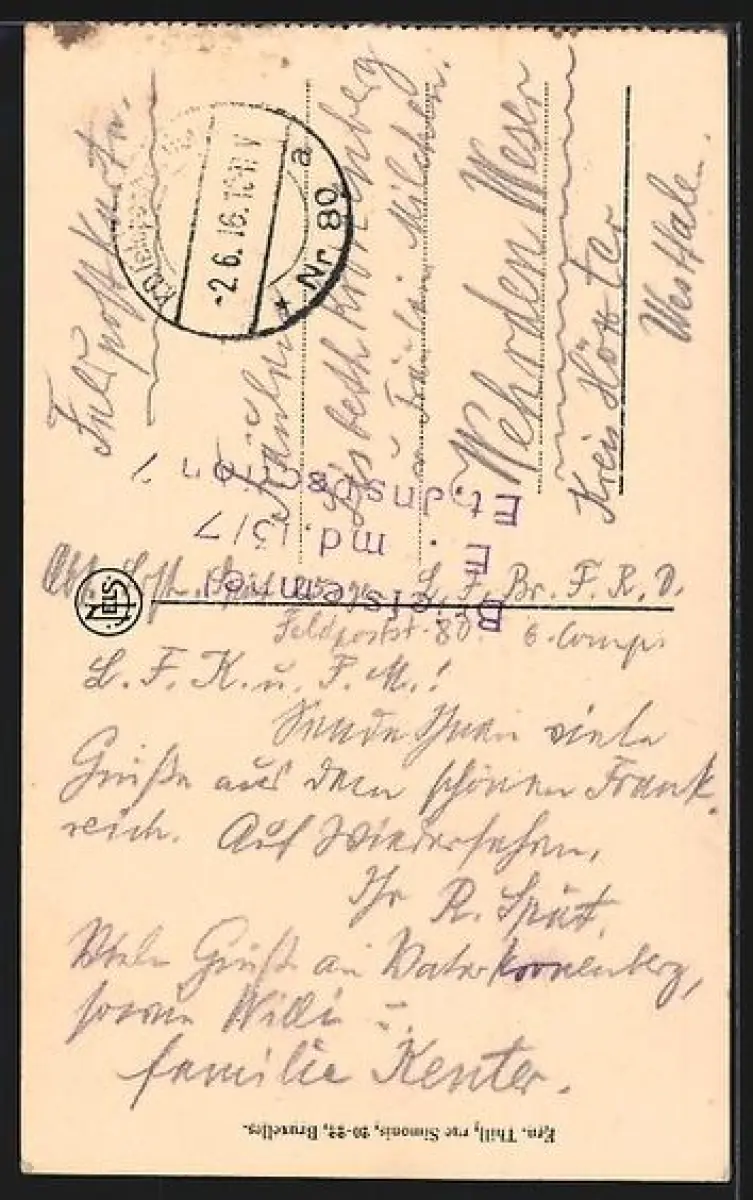 Feldpostkarte.
Nr. 80
a
-2.6.16. 10-11 V
Fräulein
Lisbeth Kronenberg
u Fräulein Milchen.
Wehrden Weser
Kreis Höxter
Westfalen.
Et. Insp.
md. 13/7
E.
NELS
Abs. Späth L. F. Br. F. R. D.
Feldpostst. 80. 6. Comp.
L. F. K. u. F. M.!
Sende Ihnen viele
Grüße aus dem schönen Frank
reich. Auf Wiedersehen,
Ihr R. Spät.
Viele Grüße an Vater Kronenberg,
sowie Willi u.
familie Kenter.
Ern. Thill, rue Simonis, 20-22, Bruxelles.